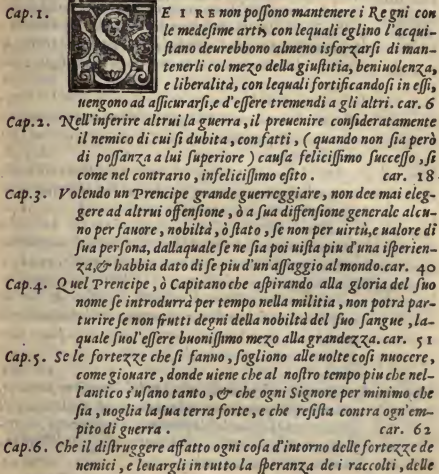 Cap. 1. SE I RE non poſſono mantenere i Regni con
le medeſime arti, con lequali eglino l'acqui-
ſtano deurebbono almeno isforzarſi di man-
tenerli col mezo della giuſtitia, beniuolenza,
e liberalità, con lequali fortificandoſi in eſſi,
uengono ad aſſicurarſi, e d'eſſere tremendi a gli altri. car. 6
Cap. 2. Nell'inferire altrui la guerra, il preuenire conſideratamente
il nemico di cui ſi dubita, con fatti, (quando non ſia però
di poſſanza a lui ſuperiore) cauſa feliciſſimo ſucceſſo, ſi
come nel contrario, infeliciſſimo eſito. car. 18
Cap. 3. Volendo un Prencipe grande guerreggiare, non dee mai eleg-
gere ad altrui offenſione, ò a ſua diffenſione generale alcu-
no per fauore, nobiltà, ò ſtato, ſe non per uirtù, e ualore di
ſua perſona, dallaquale ſe ne ſia poi uiſta piu d'una iſperien-
za, & habbia dato di ſe piu d'un'aſſaggio al mondo. car. 40
Cap. 4. Quel Prencipe, ò Capitano che aſpirando alla gloria del ſuo
nome ſe introdurrà per tempo nella militia, non potrà par-
turire ſe non frutti degni della nobiltà del ſuo ſangue, la-
quale ſuol'eſſere buoniſſimo mezo alla grandezza. car. 51
Cap. 5. Se le fortezze che ſi fanno, ſogliono alle uolte coſi nuocere,
come giouare, donde uiene che al noſtro tempo piu che nel-
l'antico s'uſano tanto, & che ogni Signore per minimo che
ſia, uoglia la ſua terra forte, e che reſiſta contra ogn'em-
pito di guerra. car. 62
Cap. 6. Che il diſtruggere affatto ogni coſa d'intorno delle fortezze de
nemici, e leuargli in tutto la ſperanza de i raccolti, delle